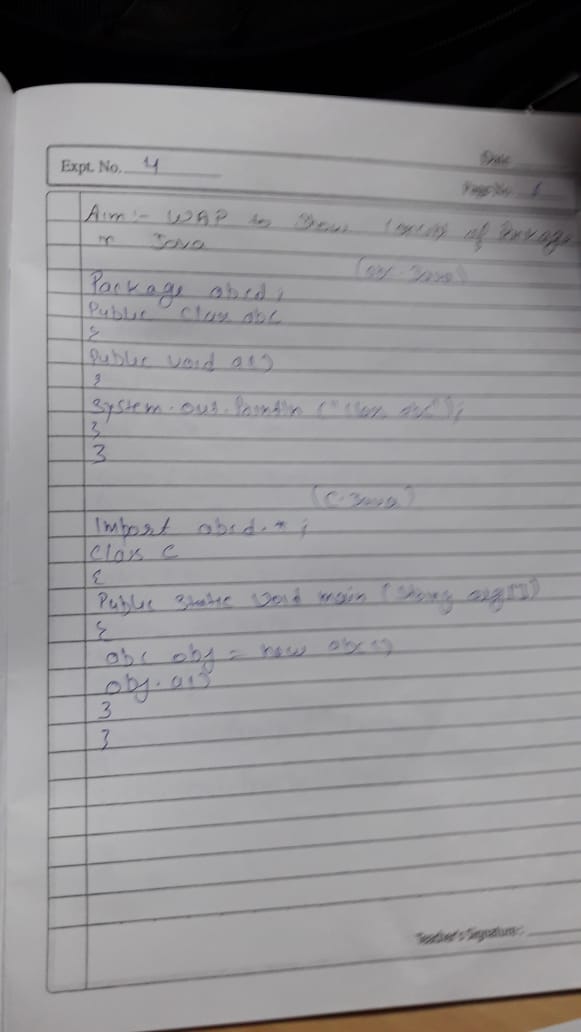 Expt. No. 4
Date
Page No. 1
Aim :- WAP to show concept of Package
in Java
Package abcd;
Public Class abc
{
Public void a()
{
System.out.Println ("Class abc");
}
}
(C.Java)
Import abcd.*;
Class C
{
Public Static Void main (String arg[])
{
abc obj = new abc()
obj.a()
}
}
Teacher's Signature: